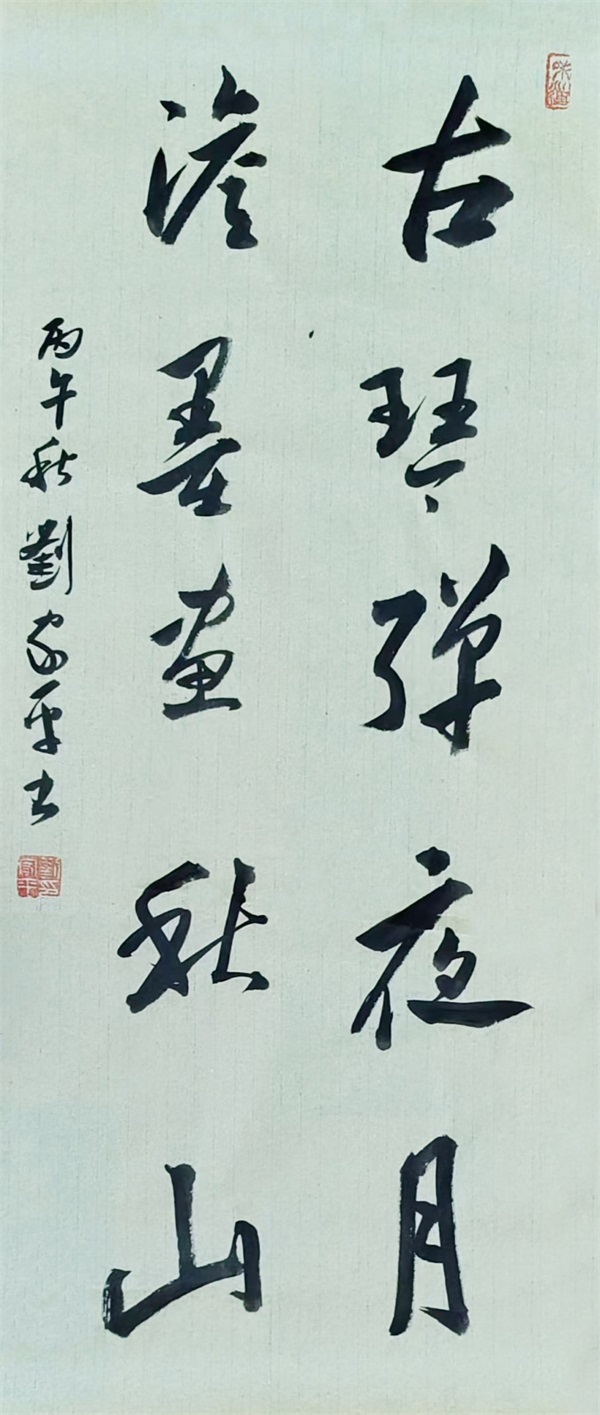 古琴弹夜月
澹墨画秋山
丙午秋劉家平书